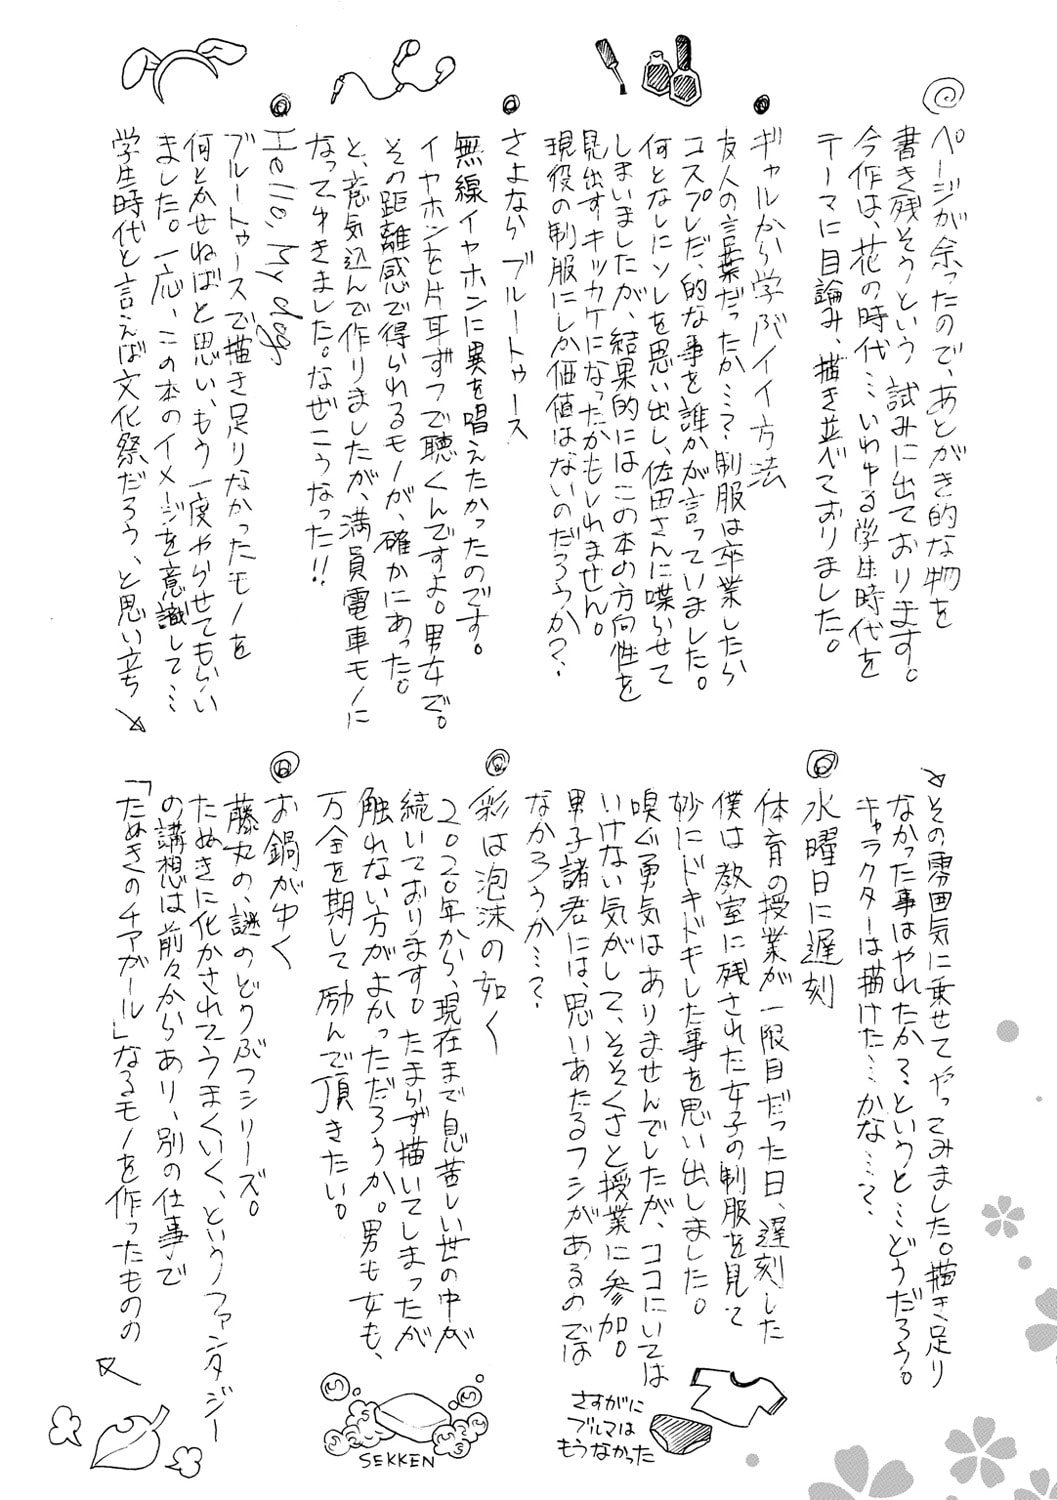 ページが余ったので、あとがき的な物を
書き残そうという 試みに出ております。
今作は、花の時代…いわゆる学生時代を
テーマに目論み、描き並べておりました。
ギャルから学ぶイイ方法
友人の言葉だったか…?制服は卒業したら
コスプレだ、的な事を誰かが言っていました。
何となしにソレを思い出し、佐田さんに喋らせて
しまいましたが、結果的にはこの本の方向性を
見出すキッカケになったかもしれません。
現役の制服にしか価値はないのだろうか?
さよなら ブルートゥース
無線イヤホンに異を唱えたかったのです。
イヤホンを片耳ずつで聴くんですよ。男女で。
その距離感で得られるモノが、確かにあった。
と、意気込んで作りましたが、満員電車モノに
なってゆきました。なぜこうなった!!
Hello, My dog,
ブルートゥースで描き足りなかったモノを
何とかせねばと思い、もう一度やらせてもらい
ました。一応、この本のイメージを意識して…
学生時代と言えば文化祭だろう、と思い立ち ↘
↘その雰囲気に乗せてやってみました。描き足り
なかった事はやれたかる、というと…どうだろう。
キャラクターは描けた…かな…?
水曜日に遅刻
体育の授業が一限目だった日、遅刻した
僕は教室に残された女子の制服を見て
妙にドキドキした事を思い出しました。
嗅ぐ勇気はありませんでしたが、ココにいては
いけない気がして、そそくさと授業に参加。
男子諸君には、思いあたるフシがあるのでは
なかろうか…?
さすがに
ブルマは
もうなかった
彩は泡沫の如く
2020年から、現在まで息苦しい世の中が
続いております。たまらず描いてしまったが
触れない方がよかっただろうか。男も女も、
万全を期して励んで頂きたい。
SEKKEN
お鍋がゆく
藤丸の、謎のどうぶつシリーズ。
たぬきに化かされてうまくいく、というファンタジー
の講想は前々からあり、別の仕事で
「たぬきのチアガール」なるモノを作ったものの